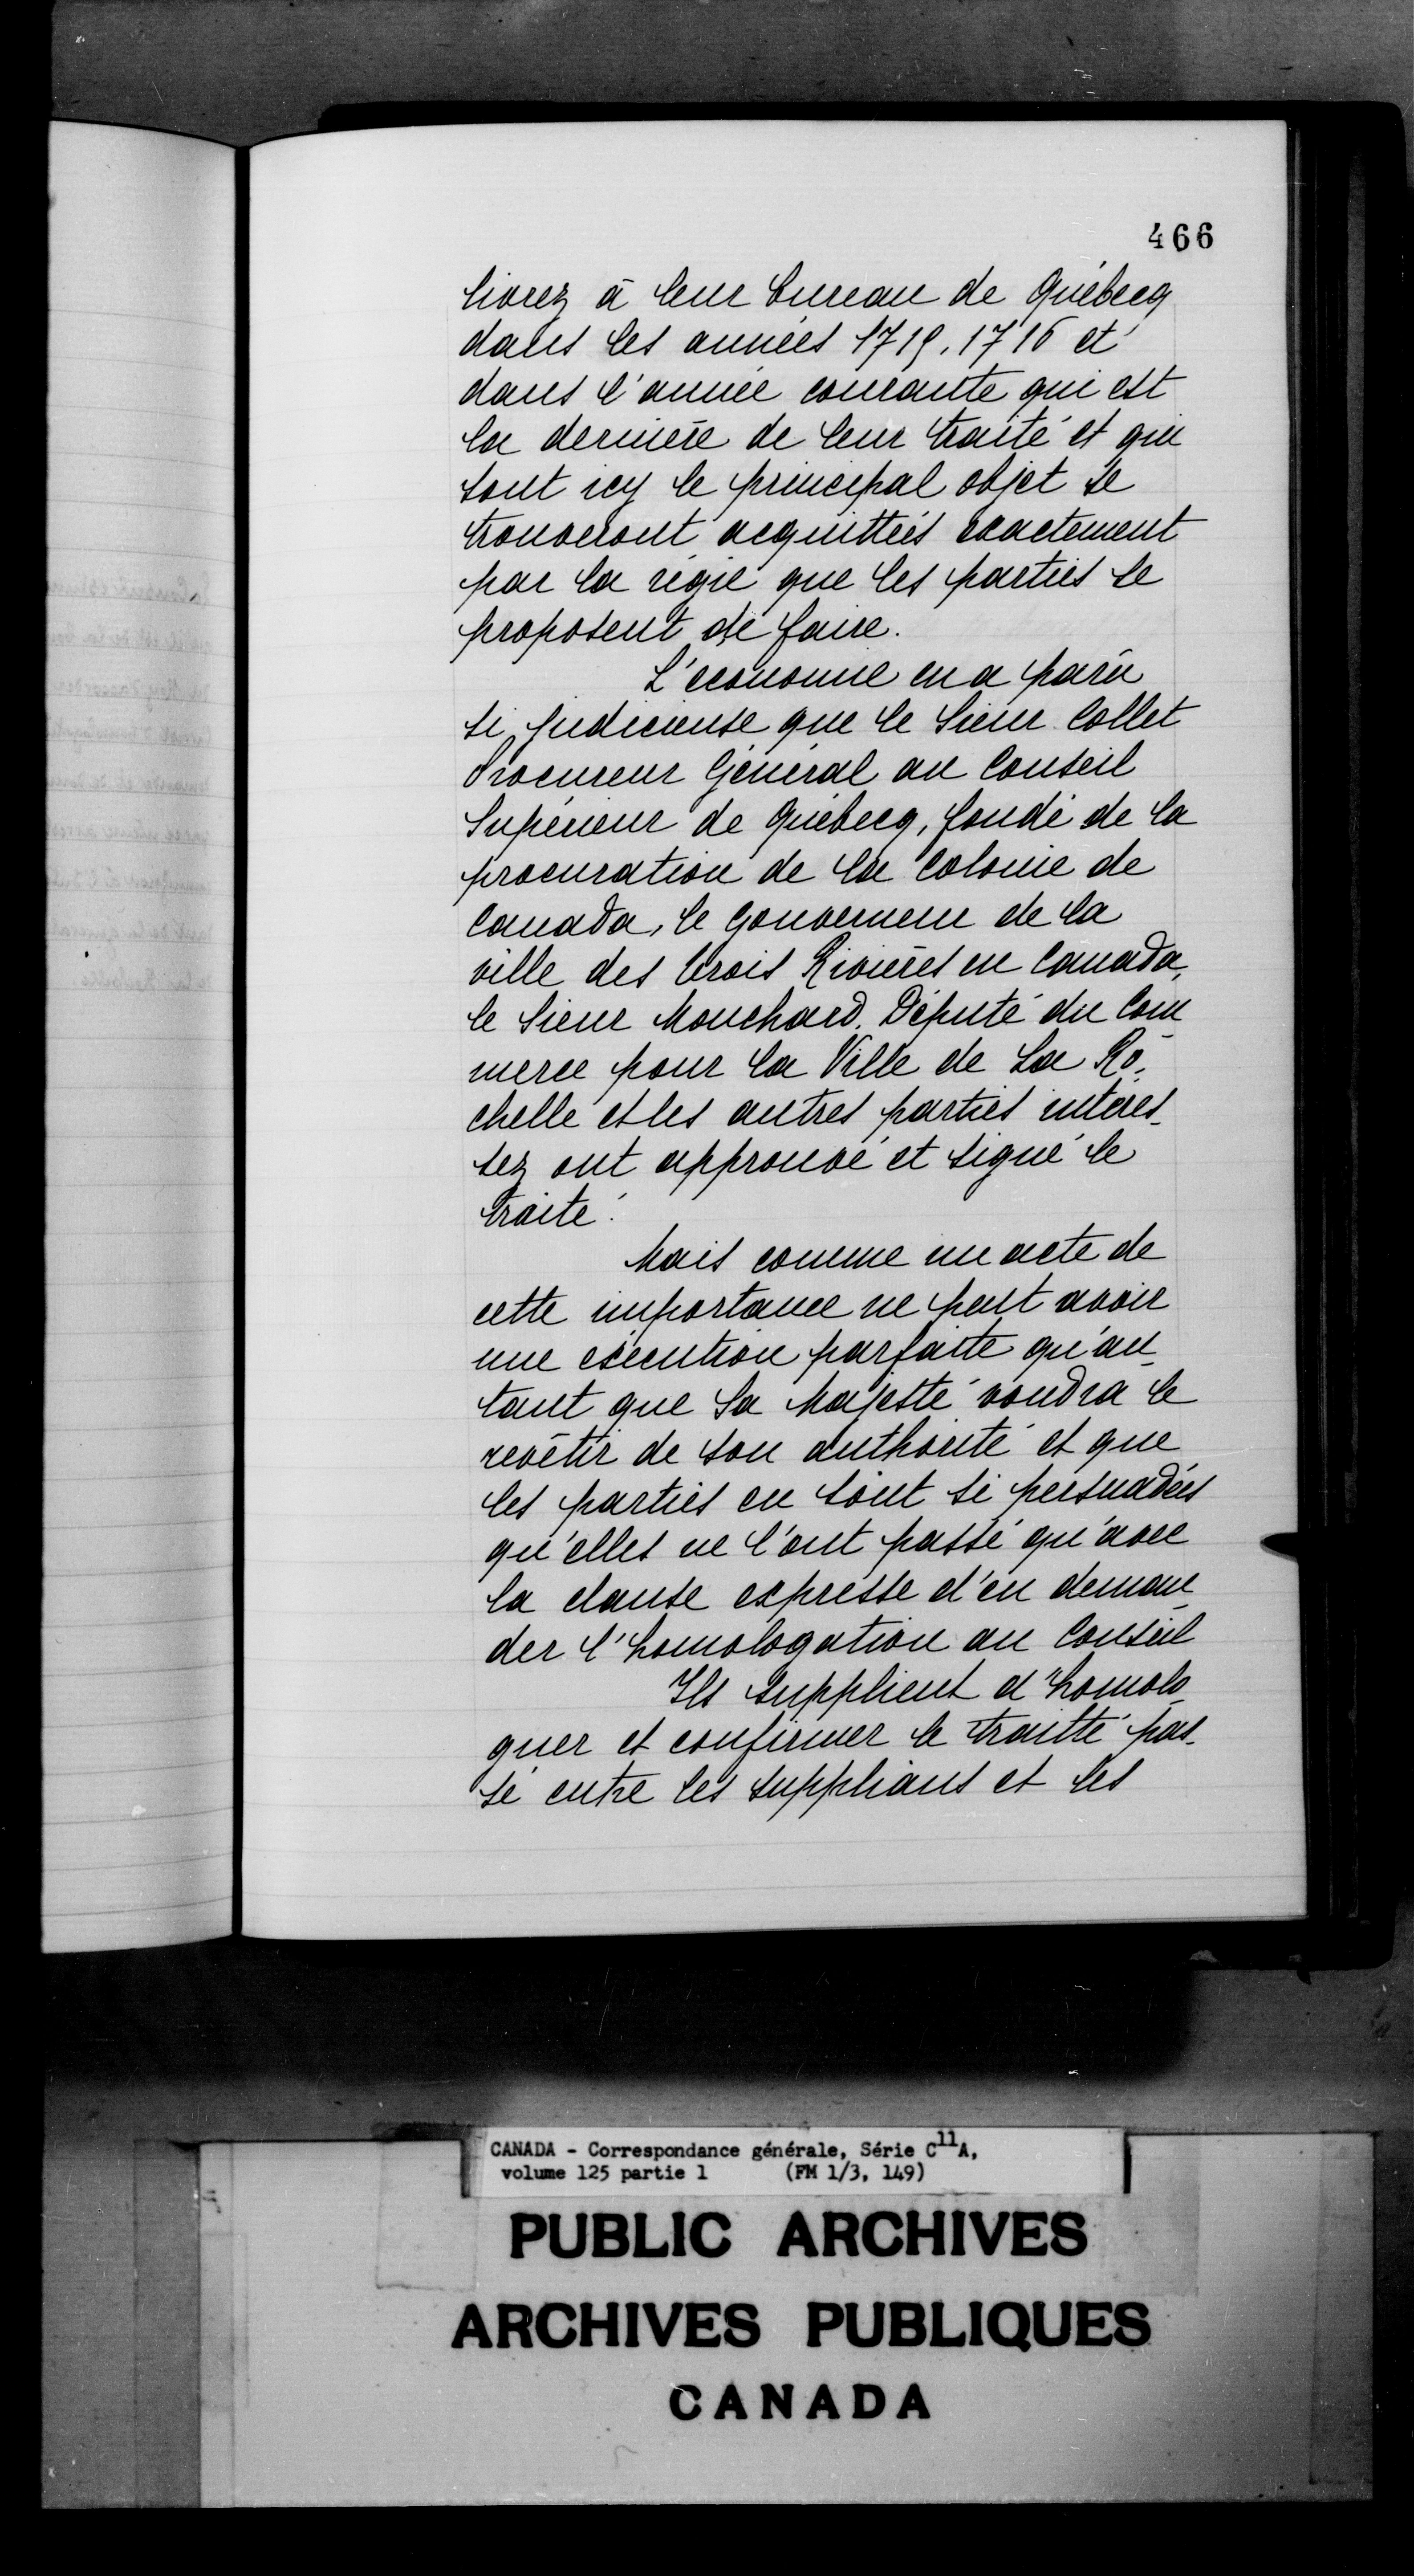 466
livrez à leur bureau de Québecq
dans les années 1715, 1716 et
dans l'année courante qui est
la dernière de leur traité et qui
sont icy le principal objet se
trouveront acquittées exactement
par la régie que les parties se
proposent de faire.
L'économie en a parû
si judicieuse que le Sieur Collet
Procureur Général au Conseil
Supérieur de Québecq, fondé de la
procuration de la Colonie de
Canada, le Gouverneur de la
ville des trois Rivières en Canada,
le Sieur Mouchard, Député du Com
merce pour la Ville de La Ro-
chelle et les autres parties intéres-
sez ont approuvé et signé le
traité.
Mais comme un acte de
cette importance ne peut avoir
une exécution parfaite qu'au-
tant que Sa Majesté voudra le
revêtir de son authorité et que
les parties en sont si persuadées
qu'elles ne l'ont passé qu'avec
la clause expresse d'en deman-
der l'homologation au Conseil
Ils supplient d'homolo-
guer et confirmer le traitté pas-
sé entre les supplians et les
CANADA - Correspondance générale, Série C11A,
volume 125 partie 1 (FM 1/3, 149)
PUBLIC ARCHIVES
ARCHIVES PUBLIQUES
CANADA